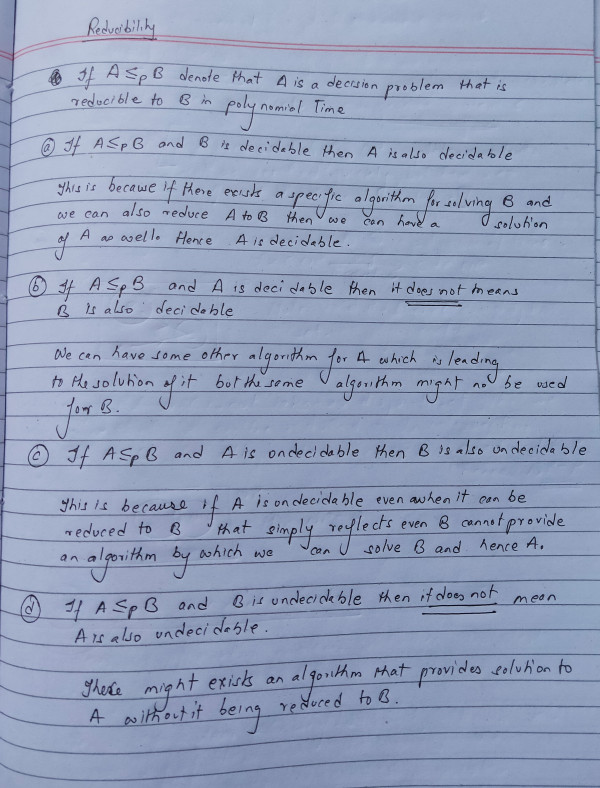 Reducibility
If A ≤p B denote that A is a decision problem that is
reducible to B in polynomial Time
ⓐ If A ≤p B and B is decidable then A is also decidable
This is because if there exists a specific algorithm for solving B and
we can also reduce A to B then we can have a solution
of A as well. Hence A is decidable.
ⓑ If A ≤p B and A is decidable then it does not means
B is also decidable
We can have some other algorithm for A which is leading
to the solution of it but the same algorithm might not be used
for B.
ⓒ If A ≤p B and A is undecidable then B is also undecidable
This is because if A is undecidable even when it can be
reduced to B that simply reflects even B cannot provide
an algorithm by which we can solve B and hence A.
ⓓ If A ≤p B and B is undecidable then it does not mean
A is also undecidable.
There might exists an algorithm that provides solution to
A without it being reduced to B.